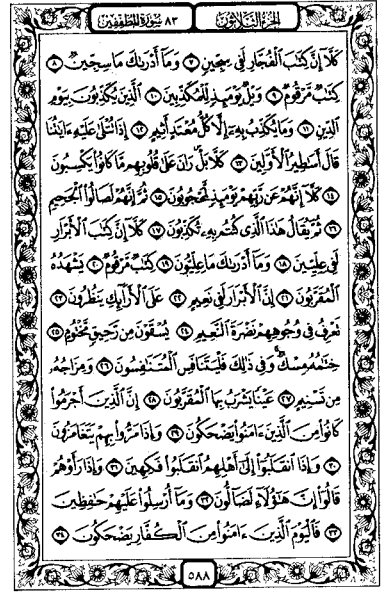 الجزء الثلاثون ٨٣ سورة المطففين
كَلَّا إِنَّ كِتَٰبَ الْفُجَّارِ لَفِى سِجِّينٍ ٧ وَمَا أَدْرَىٰكَ مَا سِجِّينٌ ٨
كِتَٰبٌ مَّرْقُومٌ ٩ وَيْلٌ يَوْمَئِذٍ لِّلْمُكَذِّبِينَ ١٠ الَّذِينَ يُكَذِّبُونَ بِيَوْمِ
الدِّينِ ١١ وَمَا يُكَذِّبُ بِهِۦ إِلَّا كُلُّ مُعْتَدٍ أَثِيمٍ ١٢ إِذَا تُتْلَىٰ عَلَيْهِ ءَايَٰتُنَا
قَالَ أَسَٰطِيرُ الْأَوَّلِينَ ١٣ كَلَّا بَلْ رَانَ عَلَىٰ قُلُوبِهِم مَّا كَانُوا يَكْسِبُونَ
١٤ كَلَّا إِنَّهُمْ عَن رَّبِّهِمْ يَوْمَئِذٍ لَّمَحْجُوبُونَ ١٥ ثُمَّ إِنَّهُمْ لَصَالُوا الْجَحِيمِ
١٦ ثُمَّ يُقَالُ هَٰذَا الَّذِى كُنتُم بِهِۦ تُكَذِّبُونَ ١٧ كَلَّا إِنَّ كِتَٰبَ الْأَبْرَارِ
لَفِى عِلِّيِّينَ ١٨ وَمَا أَدْرَىٰكَ مَا عِلِّيُّونَ ١٩ كِتَٰبٌ مَّرْقُومٌ ٢٠ يَشْهَدُهُ
الْمُقَرَّبُونَ ٢١ إِنَّ الْأَبْرَارَ لَفِى نَعِيمٍ ٢٢ عَلَى الْأَرَائِكِ يَنظُرُونَ ٢٣
تَعْرِفُ فِى وُجُوهِهِمْ نَضْرَةَ النَّعِيمِ ٢٤ يُسْقَوْنَ مِن رَّحِيقٍ مَّخْتُومٍ ٢٥
خِتَٰمُهُۥ مِسْكٌ وَفِى ذَٰلِكَ فَلْيَتَنَافَسِ الْمُتَنَٰفِسُونَ ٢٦ وَمِزَاجُهُۥ
مِن تَسْنِيمٍ ٢٧ عَيْنًا يَشْرَبُ بِهَا الْمُقَرَّبُونَ ٢٨ إِنَّ الَّذِينَ أَجْرَمُوا
كَانُوا مِنَ الَّذِينَ ءَامَنُوا يَضْحَكُونَ ٢٩ وَإِذَا مَرُّوا بِهِمْ يَتَغَامَزُونَ
٣٠ وَإِذَا انقَلَبُوا إِلَىٰ أَهْلِهِمُ انقَلَبُوا فَكِهِينَ ٣١ وَإِذَا رَأَوْهُمْ
قَالُوا إِنَّ هَٰؤُلَاءِ لَضَالُّونَ ٣٢ وَمَا أُرْسِلُوا عَلَيْهِمْ حَٰفِظِينَ
٣٣ فَالْيَوْمَ الَّذِينَ ءَامَنُوا مِنَ الْكُفَّارِ يَضْحَكُونَ ٣٤
٥٨٨